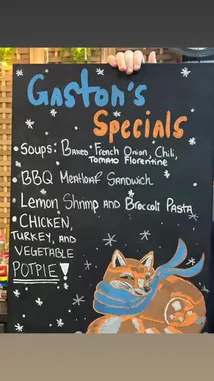 Gaston's
Specials
• Soups: Baked French Onion, Chili,
Tomato Florentine
• BBQ Meatloaf Sandwich
• Lemon Shrimp and Broccoli Pasta
• CHICKEN,
TURKEY, AND
VEGETABLE
POTPIE!